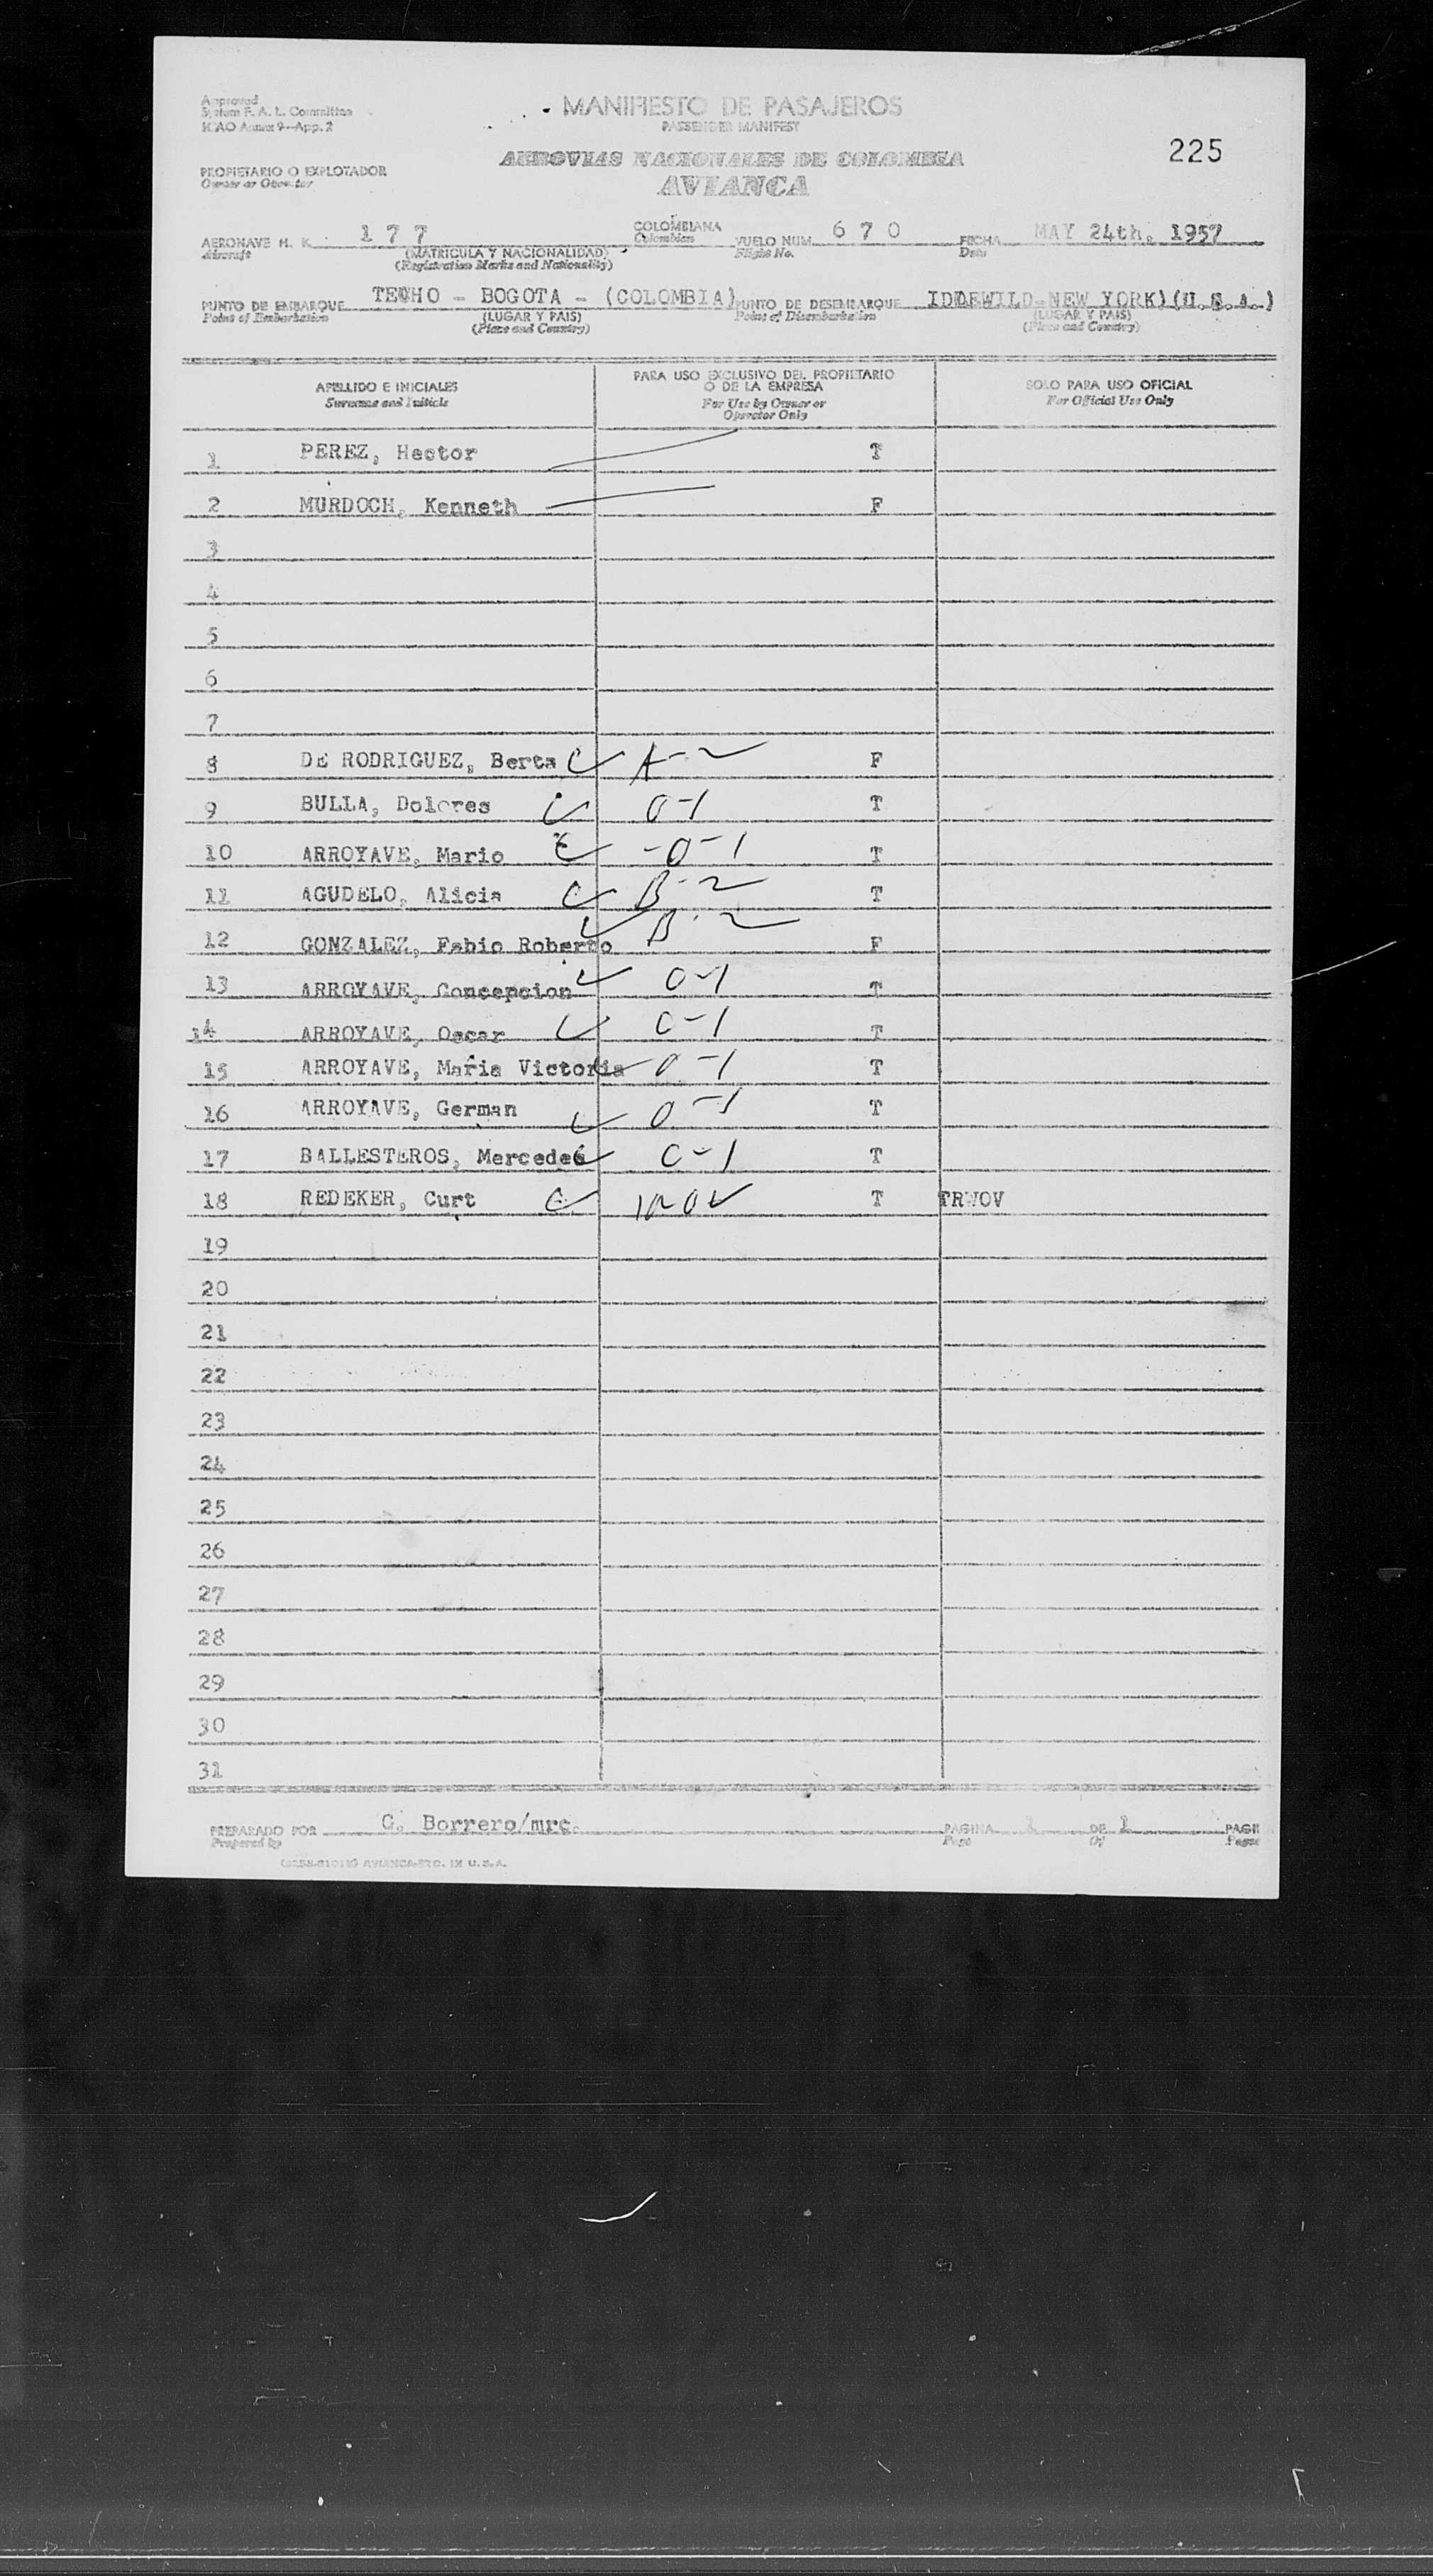 Approved
System F. A. L. Committee
ICAO Annex 9—App. 2
MANIFIESTO DE PASAJEROS
PASSENGER MANIFEST
225
AEROVIAS NACIONALES DE COLOMBIA
AVIANCA
PROPIETARIO O EXPLOTADOR
Owner or Operator
AERONAVE H. K. 177 COLOMBIANA VUELO NUM. 670 FECHA MAY 24th. 1957
Aircraft (MATRICULA Y NACIONALIDAD) Colombian Flight No. Date
(Registration Marks and Nationality)
PUNTO DE EMBARQUE TECHO - BOGOTA - (COLOMBIA) PUNTO DE DESEMBARQUE IDDEWILD-NEW YORK)(U.S.A.)
Point of Embarkation (LUGAR Y PAIS) Point of Disembarkation (LUGAR Y PAIS)
(Place and Country) (Place and Country)
APELLIDO E INICIALES PARA USO EXCLUSIVO DEL PROPIETARIO O DE LA EMPRESA SOLO PARA USO OFICIAL
Surname and Initials For Use by Owner or Operator Only For Official Use Only
1 PEREZ, Hector T
2 MURDOCH, Kenneth F
3
4
5
6
7
8 DE RODRIGUEZ, Berta A-2 F
9 BULLA, Dolores 0-1 T
10 ARROYAVE, Mario -0-1 T
11 AGUDELO, Alicia B-2 T
12 GONZALEZ, Fabio Roberto B-2 F
13 ARROYAVE, Concepcion 0-1 T
14 ARROYAVE, Oscar 0-1 T
15 ARROYAVE, Maria Victoria 0-1 T
16 ARROYAVE, German 0-1 T
17 BALLESTEROS, Mercedes 0-1 T
18 REDEKER, Curt T TRWOV
19
20
21
22
23
24
25
26
27
28
29
30
31
PREPARADO POR G. Borrero/mrc. PAGINA 1 DE 1 PAGE
Prepared by Page Of Pages
AVIANCA-PTD. IN U. S. A.